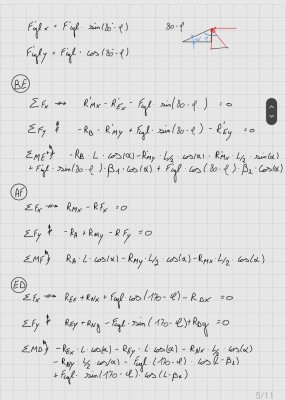 Fugl x = Fugl · sin(80·φ)
80-φ
Fugl y = Fugl · cos(80-φ)
BE
ΣFx → R'Mx - R'Ex - Fugl · sin(80-φ) = 0
ΣFy ↑ -RB - R'My + Fugl · sin(80-φ) - R'Ey = 0
ΣME -RB · L · cos(α) - R'My · L/2 · cos(α) · R'Mx · L/2 · sin(α)
+ Fugl · sin(80-φ) · β1 · cos(α) + Fugl · cos(80-φ) · β2 · cos(α)
AF
ΣFx → RMx - RFx = 0
ΣFy ↑ -RA + RMy - RFy = 0
ΣMF RA · L · cos(α) - RMy · L/2 · cos(α) - RMx · L/2 · cos(α)
ED
ΣFx → REx + RNx + Fugl · cos(170-φ) - RDx = 0
ΣFy ↑ REy + RNy - Fugl · sin(170-φ) + RDy = 0
ΣMD -REx · L · cos(α) - REy · L · cos(α) - RNx · L/2 · cos(α)
- RNy · L/2 · cos(α) - Fugl · (170-φ) · cos(L-β2)
+ Fugl · sin(170-φ) · cos(L-β2)
5/11